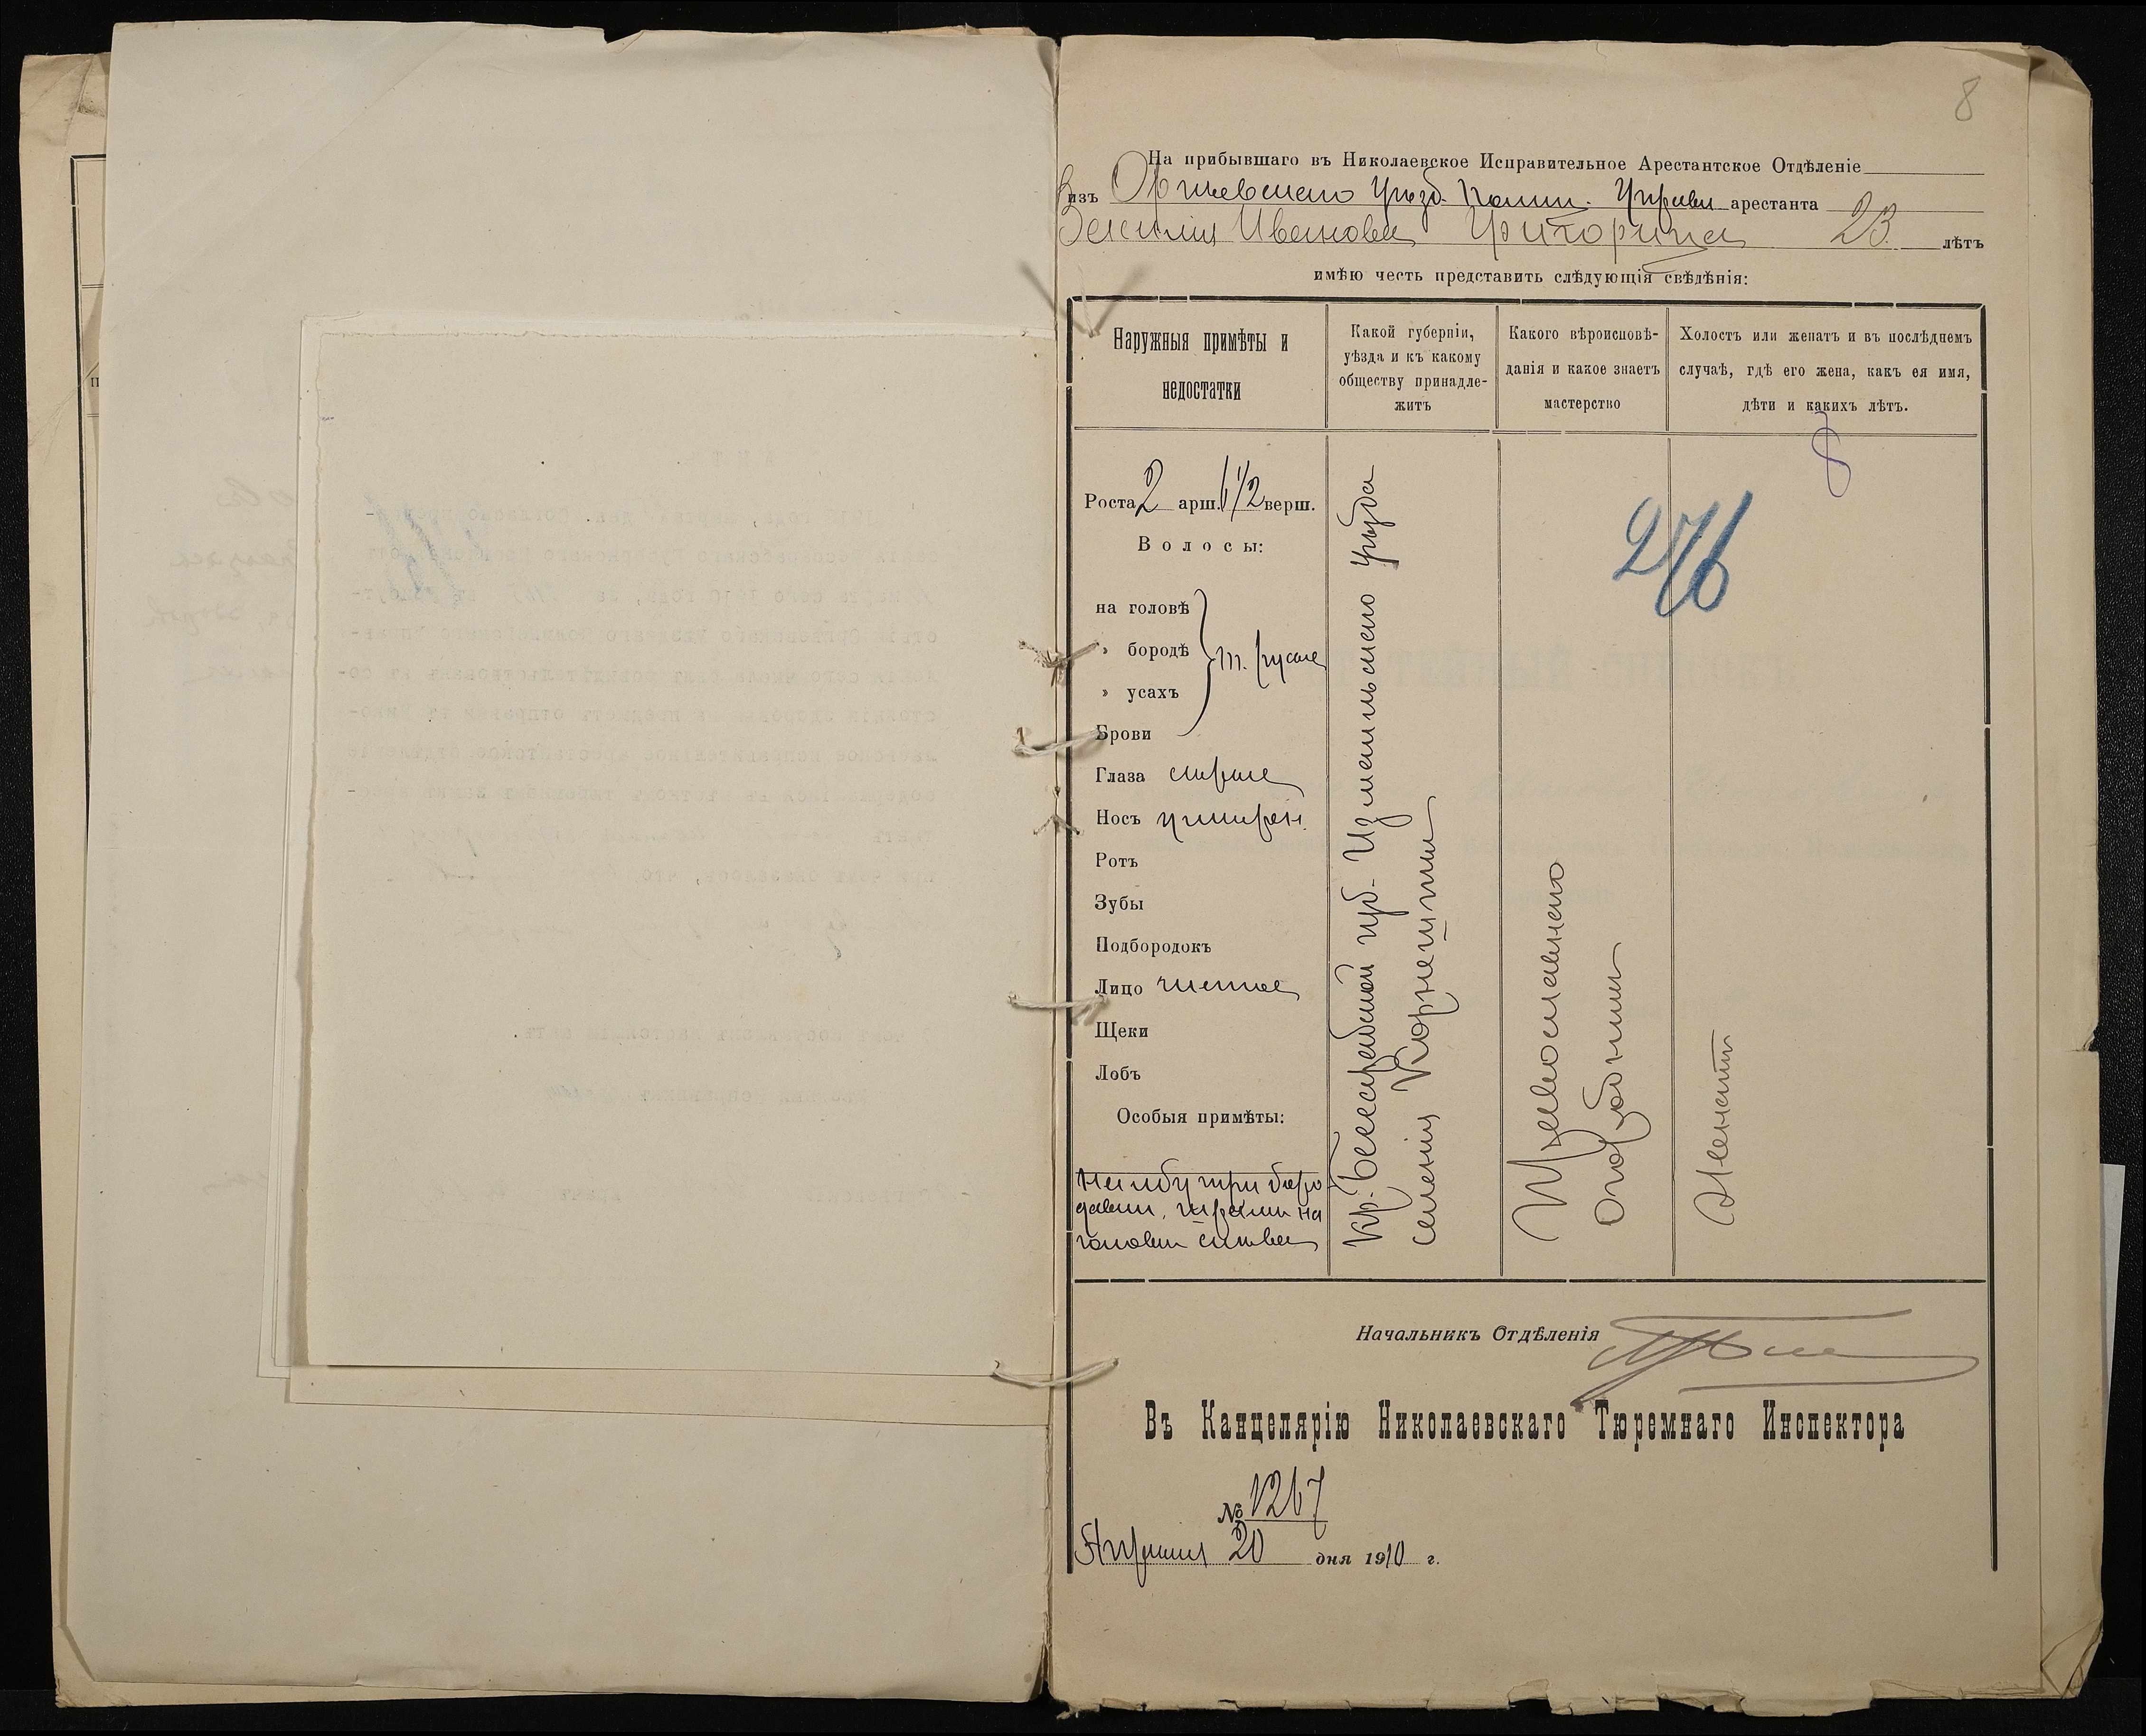 8
На прибывшаго въ Николаевское Исправительное Арестантское Отдѣленіе
изъ Оргѣевскаго уѣзд. Полиц. Управы арестанта
Василія Иванова 23 лѣтъ
имѣю честь представить слѣдующія свѣдѣнія:
Наружныя примѣты и
недостатки
Какой губерніи,
уѣзда и къ какому
обществу принадле-
житъ
Какого вѣроисповѣ-
данія и какое знаетъ
мастерство
Холостъ или женатъ и въ послѣднемъ
случаѣ, гдѣ его жена, какъ ея имя,
дѣти и какихъ лѣтъ.
8
276
Роста 2 арш. 6 1/2 верш.
Волосы:
на головѣ
» бородѣ т. русые
» усахъ
Брови
Глаза сѣрые
Носъ умѣрен.
Ротъ
Зубы
Подбородокъ
Лицо чистое
Щеки
Лобъ
Особыя примѣты:
На лбу три боро-
давки, на
головѣ
кр. Бессарабской губ. Измаильскаго уѣзда
селенія
Православнаго
Женатъ
Начальникъ Отдѣленія
Въ Канцелярію Николаевскаго Тюремнаго Инспектора
№ 1267
Апрѣля 20 дня 1910 г.